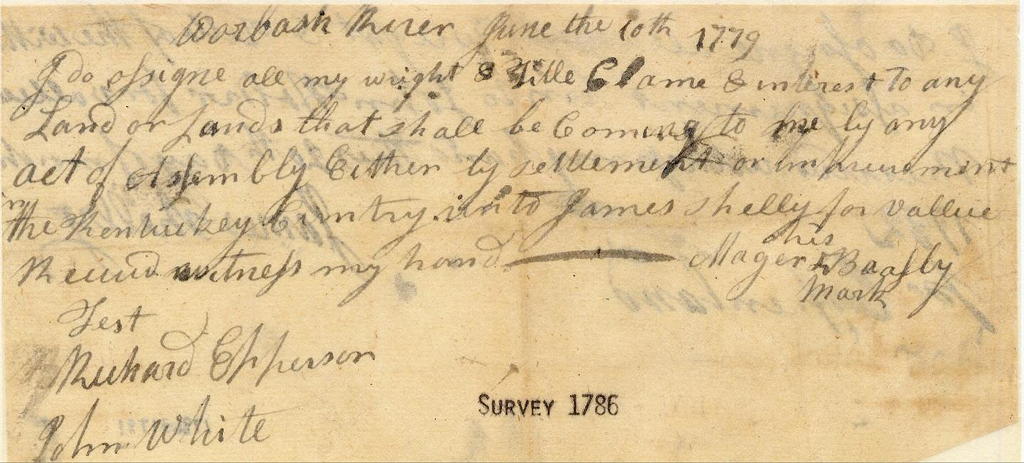 Worbash River June the 10th 1779
I do assigne all my wright & Title Clame & interest to any
Land or Lands that shall be Coming to me by any
act of Assembly Either by settlement or Improvement
in the Kentuckey Cuntry unto James Shelly for vallue
Received witness my hand his
Mager x Baasly
Mark
Test
Richard Epperson
John White
SURVEY 1786